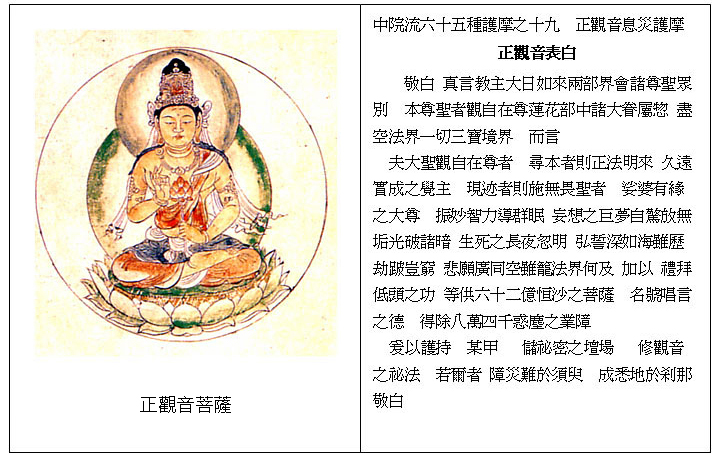 正觀音菩薩
中院流六十五種護摩之十九　正觀音息災護摩
正觀音表白
敬白 真言教主大日如來兩部界會諸尊聖眾
別　本尊聖者觀自在尊蓮花部中諸大眷屬惣 盡
空法界一切三寶境界　而言
夫大聖觀自在尊者　尋本者則正法明來 久遠
實成之覺主　現迹者則施無畏聖者　娑婆有緣
之大尊　振妙智力導群眠 妄想之巨夢自驚放無
垢光破諸暗 生死之長夜忽明 弘誓深如海雖歷
劫跛豈窮 悲願廣同空雖籠法界何及 加以 禮拜
低頭之功 等供六十二億恒沙之菩薩　名號唱言
之德　得除八萬四千惑塵之業障
爰以護持　某甲　儲祕密之壇場　修觀音
之祕法　若爾者 障災難於須臾　成悉地於剎那
敬白